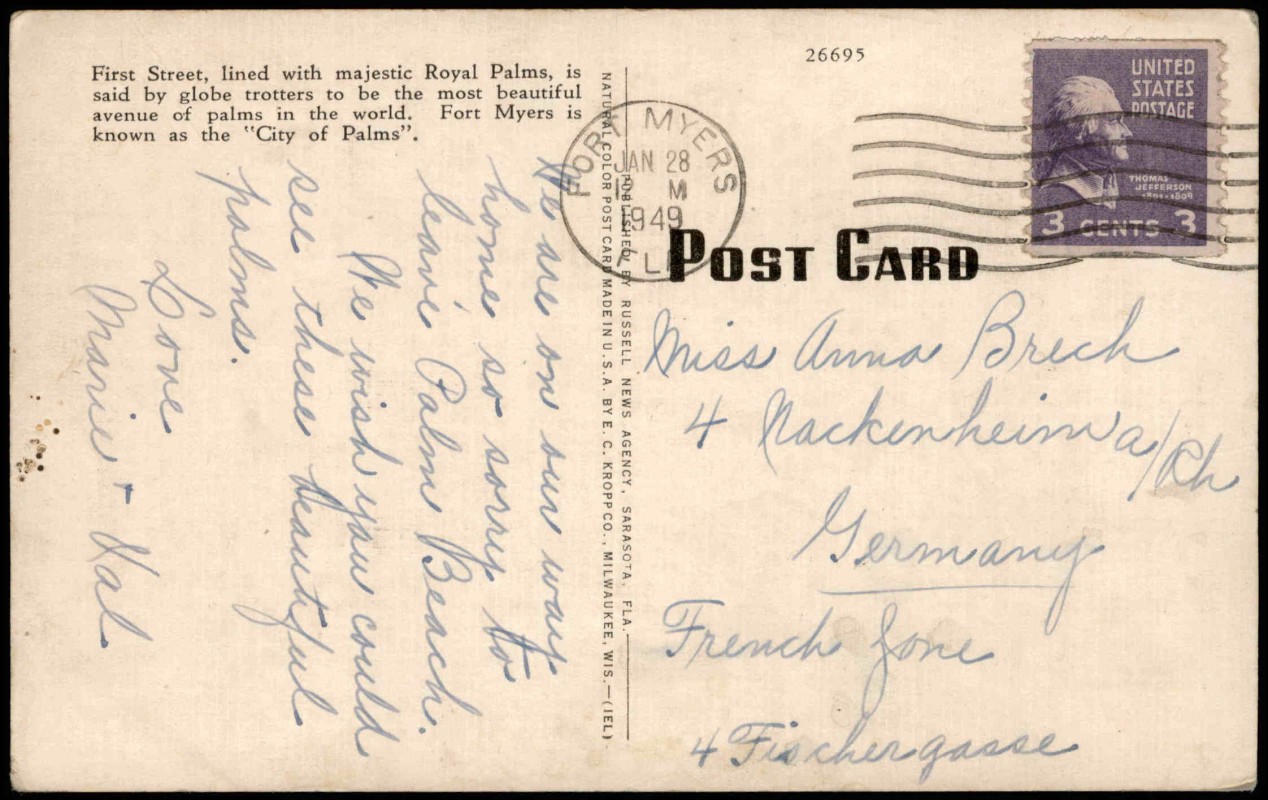 First Street, lined with majestic Royal Palms, is
said by globe trotters to be the most beautiful
avenue of palms in the world. Fort Myers is
known as the "City of Palms".
We are on our way
home so sorry to
leave Palm Beach.
We wish you could
see these beautiful
palms.
Love
Marie + Hal
NATURAL COLOR POST CARD MADE IN U.S.A. BY E. C. KROPP CO., MILWAUKEE, WIS.—(IEL)
PUBLISHED BY RUSSELL NEWS AGENCY, SARASOTA, FLA.
26695
FORT MYERS
JAN 28
12 M
1949
FLA
UNITED
STATES
POSTAGE
THOMAS
JEFFERSON
1801-1809
3 CENTS 3
POST CARD
Miss Anna Brech
4 Nackenheim a/Rh
Germany
French Zone
4 Fischergasse